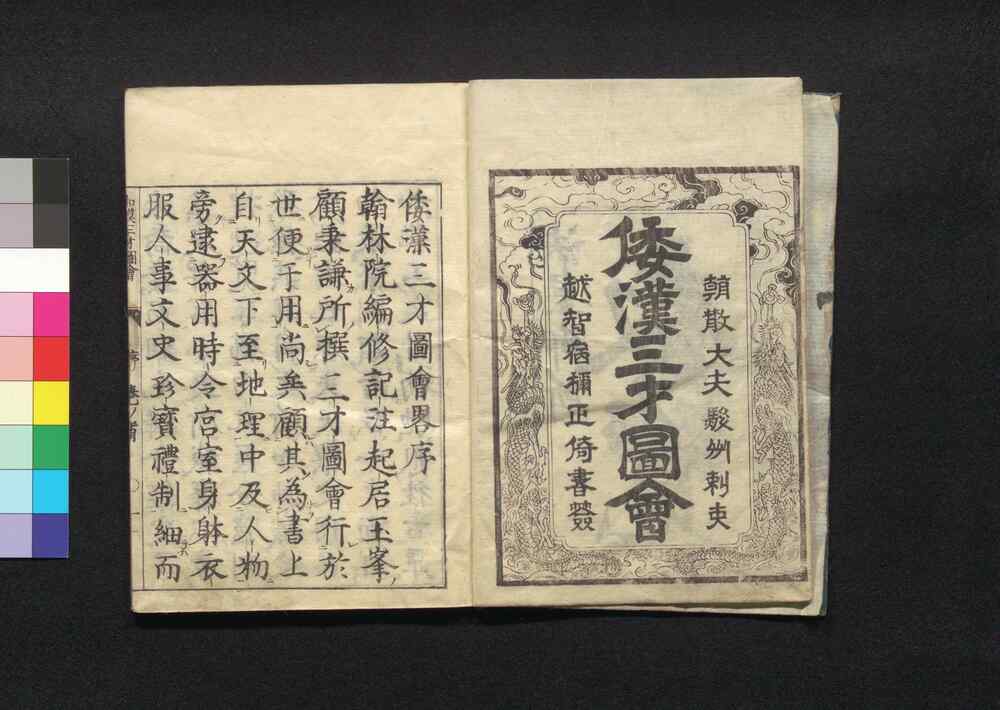 朝散大夫駿州刺史
倭漢三才圖會
越智宿禰正倚書籖
倭漢三才圖會畧序
翰林院編修記注起居王峯
顧秉謙所撰三才圖會行於
世便于用尚矣顧其為書上
自天文下至地理中及人物
旁逮器用時令宮室身躰衣
服人事文史珍寶禮制細而
和漢三才圖會